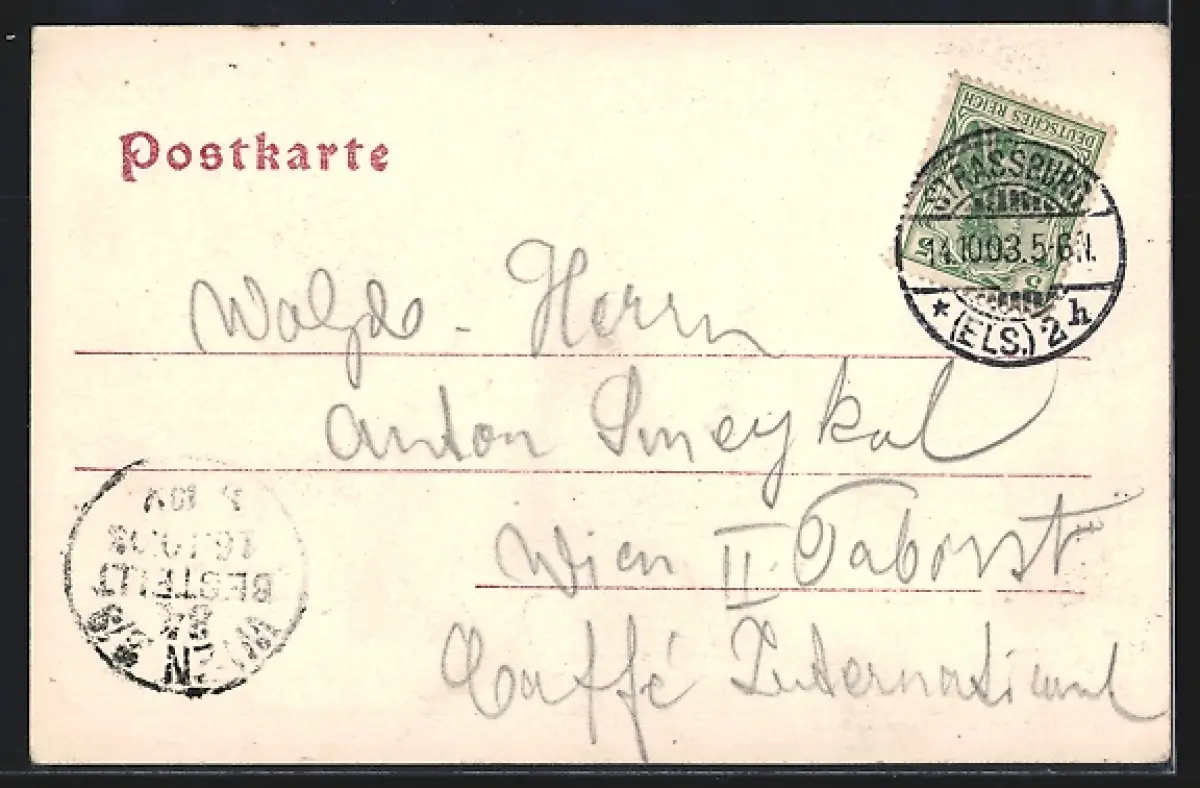 Postkarte
DEUTSCHES REICH
5 5
STRASSBURG
14.10.03. 5-6 N.
* (ELS.) 2 h
Herrn
Anton Smeykal
Wien II Taborst
Caffé International
WIEN
BESTELLT
16.10.03